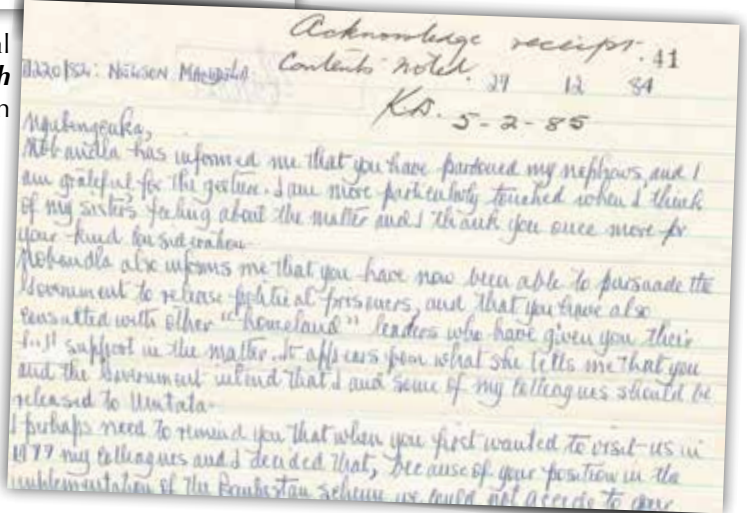 al
h
n
Acknowledge receipt. 41
Contents noted. 29 12 84
D220/82: NELSON MANDELA
KD. 5-2-85
Ngubengcuka,
Nobandla has informed me that you have pardoned my nephews, and I
am grateful for the gesture. I am more particularly touched when I think
of my sister's feeling about the matter and I thank you once more for
your kind consideration.
Nobandla also informs me that you have now been able to persuade the
Government to release political prisoners, and that you have also
consulted with other "homeland" leaders who have given you their
full support in the matter. It appears from what she tells me that you
and the Government intend that I and some of my colleagues should be
released to Umtata.
I perhaps need to remind you that when you first wanted to visit us in
1977 my colleagues and I decided that, because of your position in the
implementation of the Bantustan scheme we could not accede to your